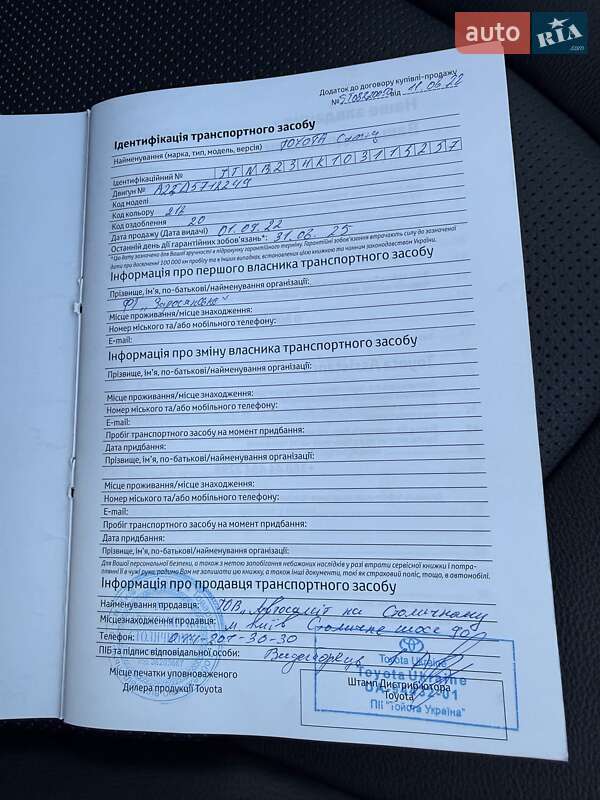 auto RIA .com
Додаток до договору купівлі-продажу
№ від 11.06.22
Ідентифікація транспортного засобу
Найменування (марка, тип, модель, версія) TOYOTA Camry
Ідентифікаційний №
Двигун №
Код моделі
Код кольору 218
Код оздоблення 20
Дата продажу (Дата видачі) 01.07.22
Останній день дії гарантійних зобов'язань*: 31.06.25
*Цю дату зазначено для Вашої зручності в підрахунку гарантійного терміну. Гарантійні зобов'язання втрачають силу до зазначеної
дати при досягненні 100 000 км пробігу та в інших випадках, встановлених цією книжкою та чинним законодавством України.
Інформація про першого власника транспортного засобу
Прізвище, ім'я, по-батькові/найменування організації:
Місце проживання/місце знаходження:
Номер міського та/або мобільного телефону:
E-mail:
Інформація про зміну власника транспортного засобу
Прізвище, ім'я, по-батькові/найменування організації:
Місце проживання/місце знаходження:
Номер міського та/або мобільного телефону:
E-mail:
Пробіг транспортного засобу на момент придбання:
Дата придбання:
Прізвище, ім'я, по-батькові/найменування організації:
Місце проживання/місце знаходження:
Номер міського та/або мобільного телефону:
E-mail:
Пробіг транспортного засобу на момент придбання:
Дата придбання:
Прізвище, ім'я, по-батькові/найменування організації:
Для Вашої персональної безпеки, а також з метою запобігання небажаних наслідків у разі втрати сервісної книжки і потра-
плянні її в чужі руки, радимо Вам не залишати цю книжку, а також інші документи, такі як страховий поліс, тощо, в автомобілі.
Інформація про продавця транспортного засобу
Найменування продавця: ТОВ "Автосаміт на Столичному
Місцезнаходження продавця: м Київ Столичне шосе 90
Телефон: 044-201-30-30
ПІБ та підпис відповідальної особи:
Місце печатки уповноваженого
Дилера продукції Toyota
Toyota Ukraine
Toyota Ukraine
Штамп Дистриб'ютора
Toyota
ПІІ "Тойота Україна"